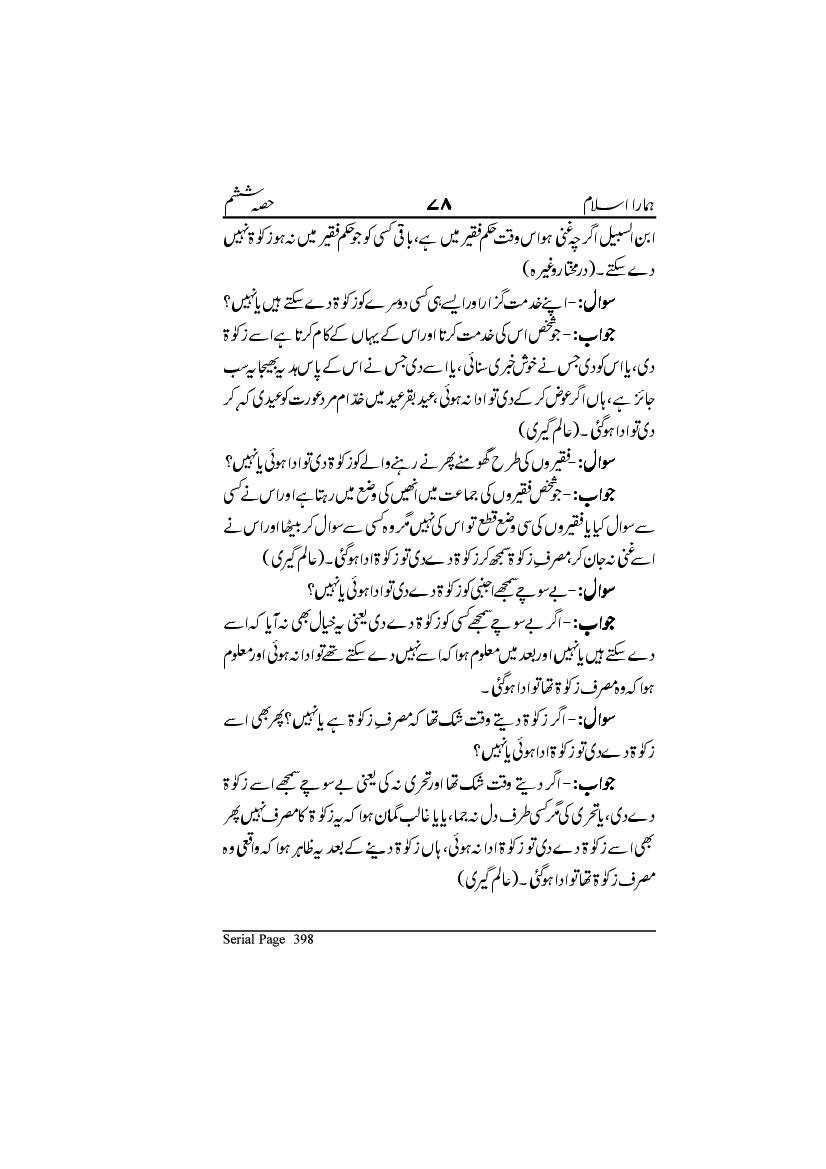 ہمارا اسلام ۷۸ حصہ ششم
ابن السبیل اگرچہ غنی ہو اس وقت حکم فقیر میں ہے، باقی کسی کو جو حکم فقیر میں نہ ہو زکوٰۃ نہیں
دے سکتے۔ (درمختار وغیرہ)
سوال:- اپنے خدمت گزار اور ایسے ہی کسی دوسرے کو زکوٰۃ دے سکتے ہیں یا نہیں؟
جواب:- جو شخص اس کی خدمت کرتا اور اس کے یہاں کے کام کرتا ہے اسے زکوٰۃ
دی، یا اس کو دی جس نے خوش خبری سنائی، یا اسے دی جس نے اس کے پاس ہدیہ بھیجا یہ سب
جائز ہے، ہاں اگر عوض کر کے دی تو ادا نہ ہوئی، عید بقر عید میں خدّام مرد عورت کو عیدی کہہ کر
دی تو ادا ہوگئی۔ (عالم گیری)
سوال:- فقیروں کی طرح گھومنے پھرنے رہنے والے کو زکوٰۃ دی تو ادا ہوئی یا نہیں؟
جواب:- جو شخص فقیروں کی جماعت میں انھیں کی وضع میں رہتا ہے اور اس نے کسی
سے سوال کیا یا فقیروں کی سی وضع قطع تو اس کی نہیں مگر وہ کسی سے سوال کر بیٹھا اور اس نے
اسے غنی نہ جان کر، مصرفِ زکوٰۃ سمجھ کر زکوٰۃ دے دی تو زکوٰۃ ادا ہوگئی۔ (عالم گیری)
سوال:- بے سوچے سمجھے اجنبی کو زکوٰۃ دے دی تو ادا ہوئی یا نہیں؟
جواب:- اگر بے سوچے سمجھے کسی کو زکوٰۃ دے دی یعنی یہ خیال بھی نہ آیا کہ اسے
دے سکتے ہیں یا نہیں اور بعد میں معلوم ہوا کہ اسے نہیں دے سکتے تھے تو ادا نہ ہوئی اور معلوم
ہوا کہ وہ مصرف زکوٰۃ تھا تو ادا ہوگئی۔
سوال:- اگر زکوٰۃ دیتے وقت شک تھا کہ مصرفِ زکوٰۃ ہے یا نہیں؟ پھر بھی اسے
زکوٰۃ دے دی تو زکوٰۃ ادا ہوئی یا نہیں؟
جواب:- اگر دیتے وقت شک تھا اور تحری نہ کی یعنی بے سوچے سمجھے اسے زکوٰۃ
دے دی، یا تحری کی مگر کسی طرف دل نہ جما، یا یا غالب گمان ہوا کہ یہ زکوٰۃ کا مصرف نہیں پھر
بھی اسے زکوٰۃ دے دی تو زکوٰۃ ادا نہ ہوئی، ہاں زکوٰۃ دینے کے بعد یہ ظاہر ہوا کہ واقعی وہ
مصرف زکوٰۃ تھا تو ادا ہوگئی۔ (عالم گیری)
Serial Page 398